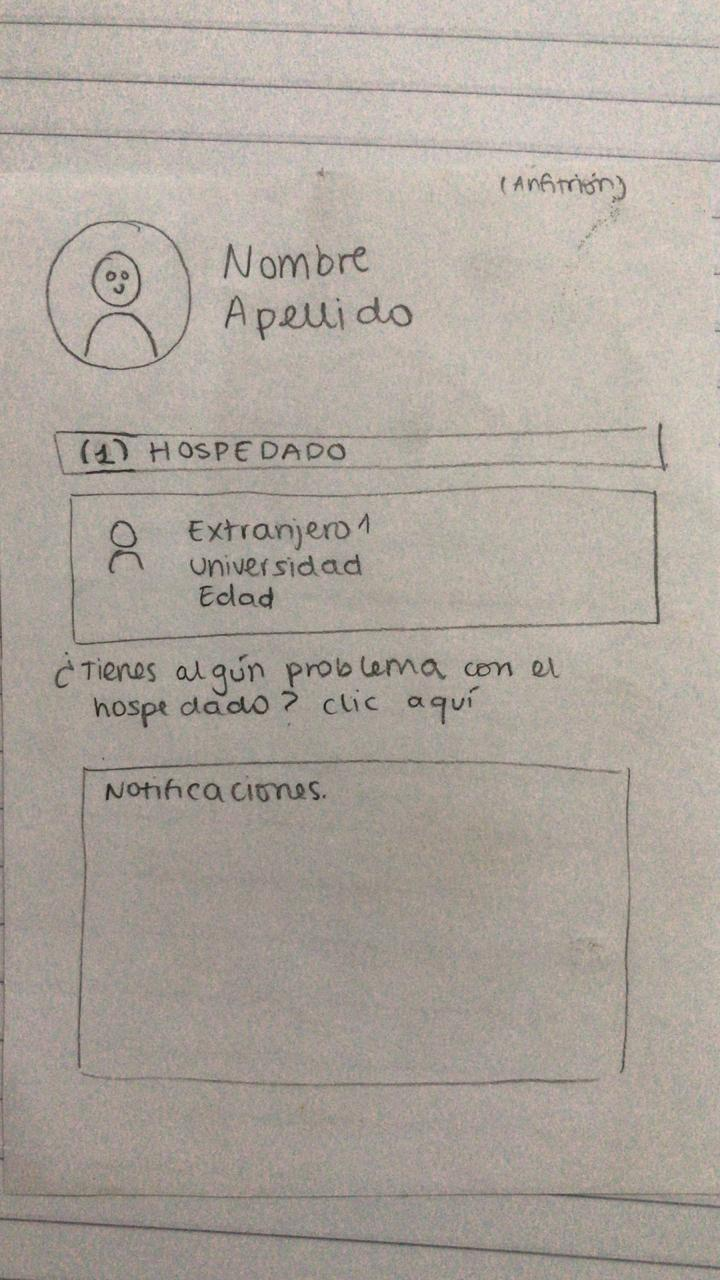 (Anfitrión)
Nombre
Apellido
(1) HOSPEDADO
Extranjero 1
Universidad
Edad
¿Tienes algún problema con el
hospedado? clic aquí
Notificaciones.